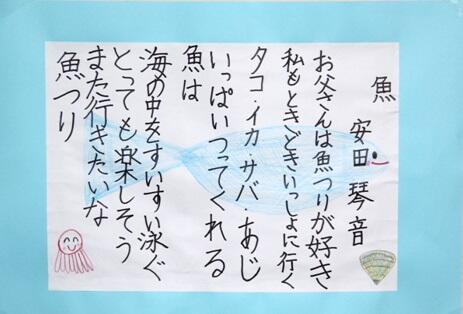 魚
安田琴音
お父さんは魚つりが好き
私もときどきいっしょに行く
タコ・イカ・サバ・あじ
いっぱいつってくれる
魚は
海の中をすいすい泳ぐ
とっても楽しそう
また行きたいな
魚つり